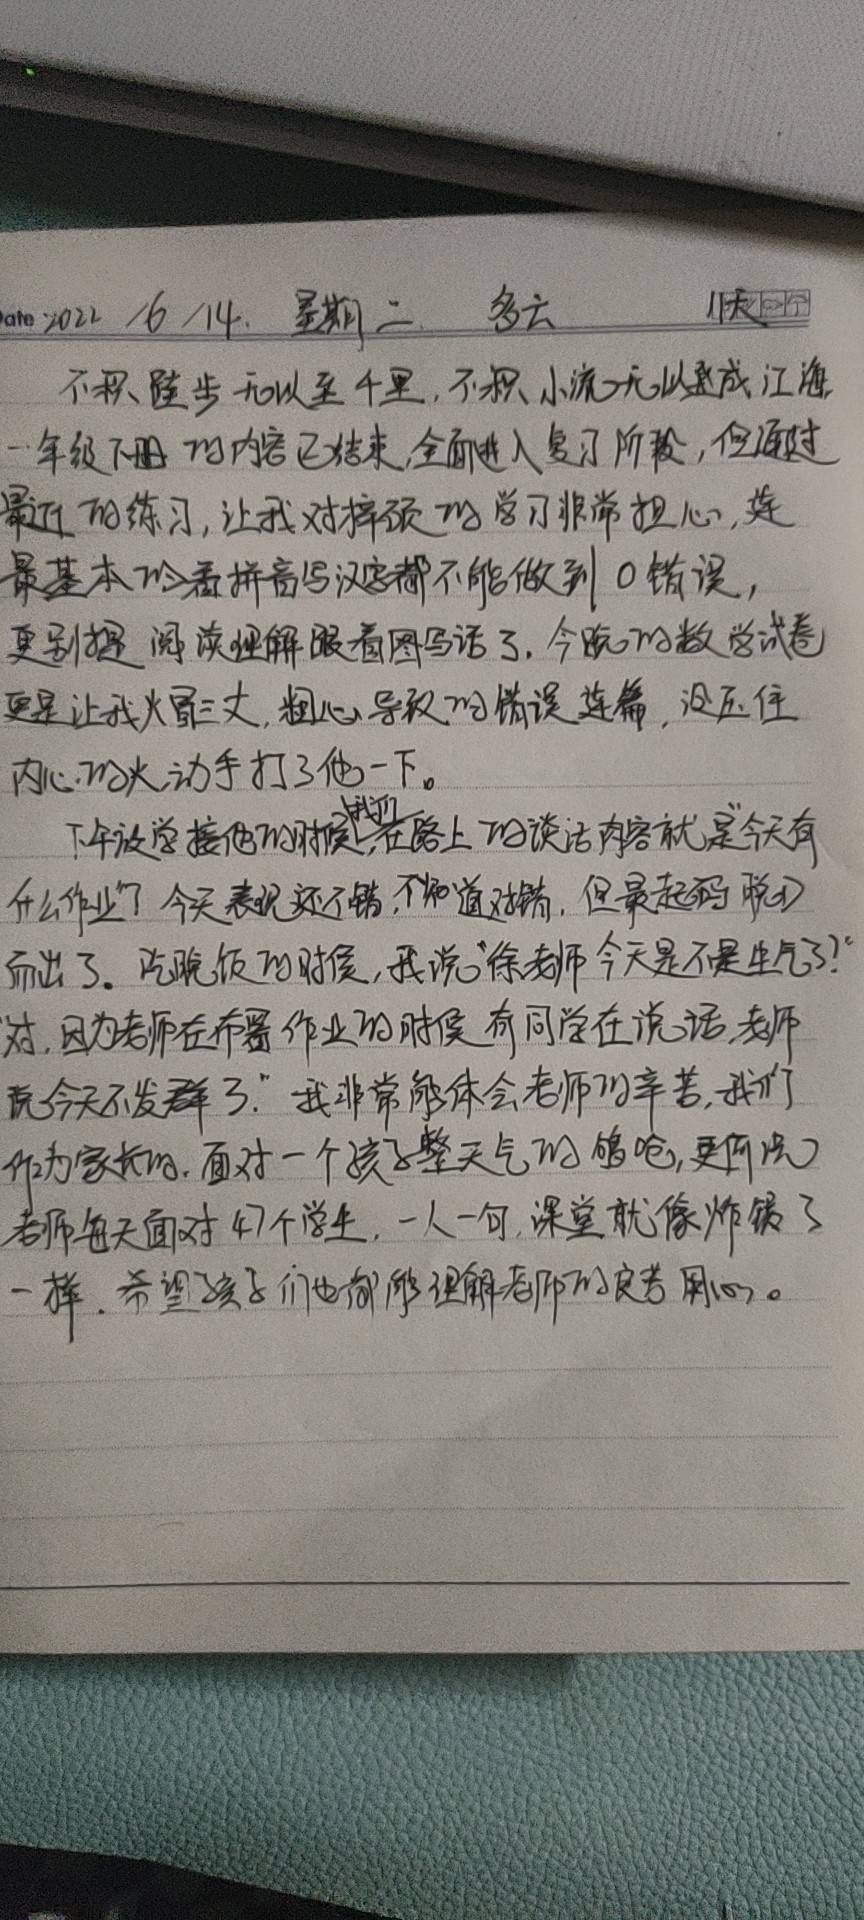 Date 2022 /6 /14. 星期二. 多云 11天
不积跬步无以至千里,不积小流无以至成江海,
一年级下册的内容已结束,全面进入复习阶段,但通过
最近的练习,让我对梓硕的学习非常担心,连
最基本的看拼音写汉字都不能做到0错误,
更别提阅读理解跟看图写话了.今晚的数学试卷
更是让我火冒三丈,粗心导致的错误连篇,没压住
内心的火,动手打了他一下。
下午放学接他的时候,我们在路上的谈话内容就是“今天有
什么作业”?今天表现还不错,不知道对错,但最起码脱口
而出了。吃晚饭的时候,我说“徐老师今天是不是生气了?”
“对,因为老师在布置作业的时候有同学在说话,老师
说今天不发群了.”我非常能体会老师的辛苦,我们
作为家长的.面对一个孩子整天气的够呛,更何况
老师每天面对47个学生,一人一句,课堂就像炸锅了
一样.希望孩子们也都能理解老师的良苦用心。